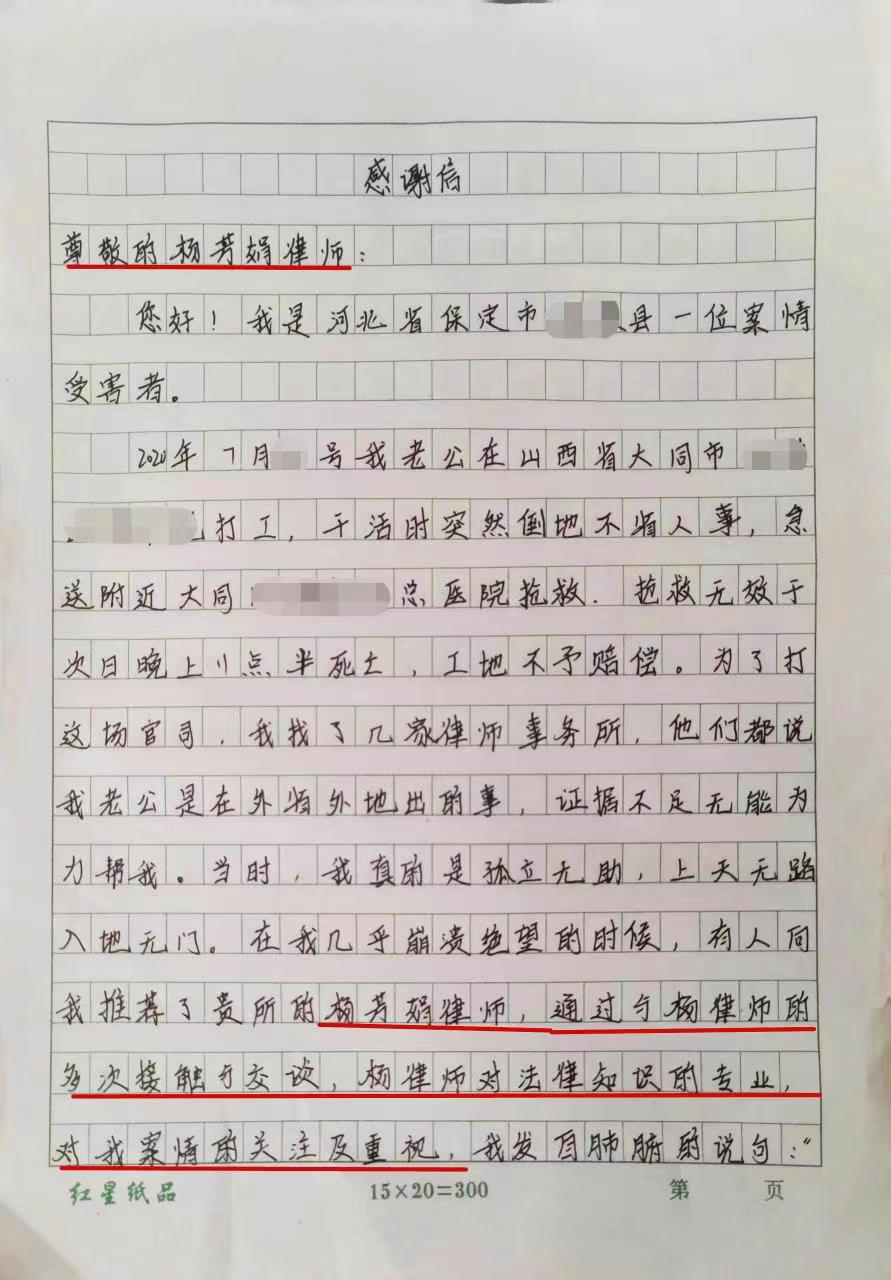 感谢信
尊敬的杨芳娟律师：
您好！我是河北省保定市县一位案情
受害者。
2020年7月号我老公在山西省大同市
打工，干活时突然倒地不省人事，急
送附近大同总医院抢救．抢救无效于
次日晚上11点半死亡，工地不予赔偿。为了打
这场官司，我找了几家律师事务所，他们都说
我老公是在外省外地出的事，证据不足无能为
力帮我。当时，我真的是孤立无助，上天无路
入地无门。在我几乎崩溃绝望的时候，有人向
我推荐了贵所的杨芳娟律师，通过与杨律师的
多次接触与交谈，杨律师对法律知识的专业，
对我案情的关注及重视，我发自肺腑的说句：“
红星纸品 15×20=300 第 页